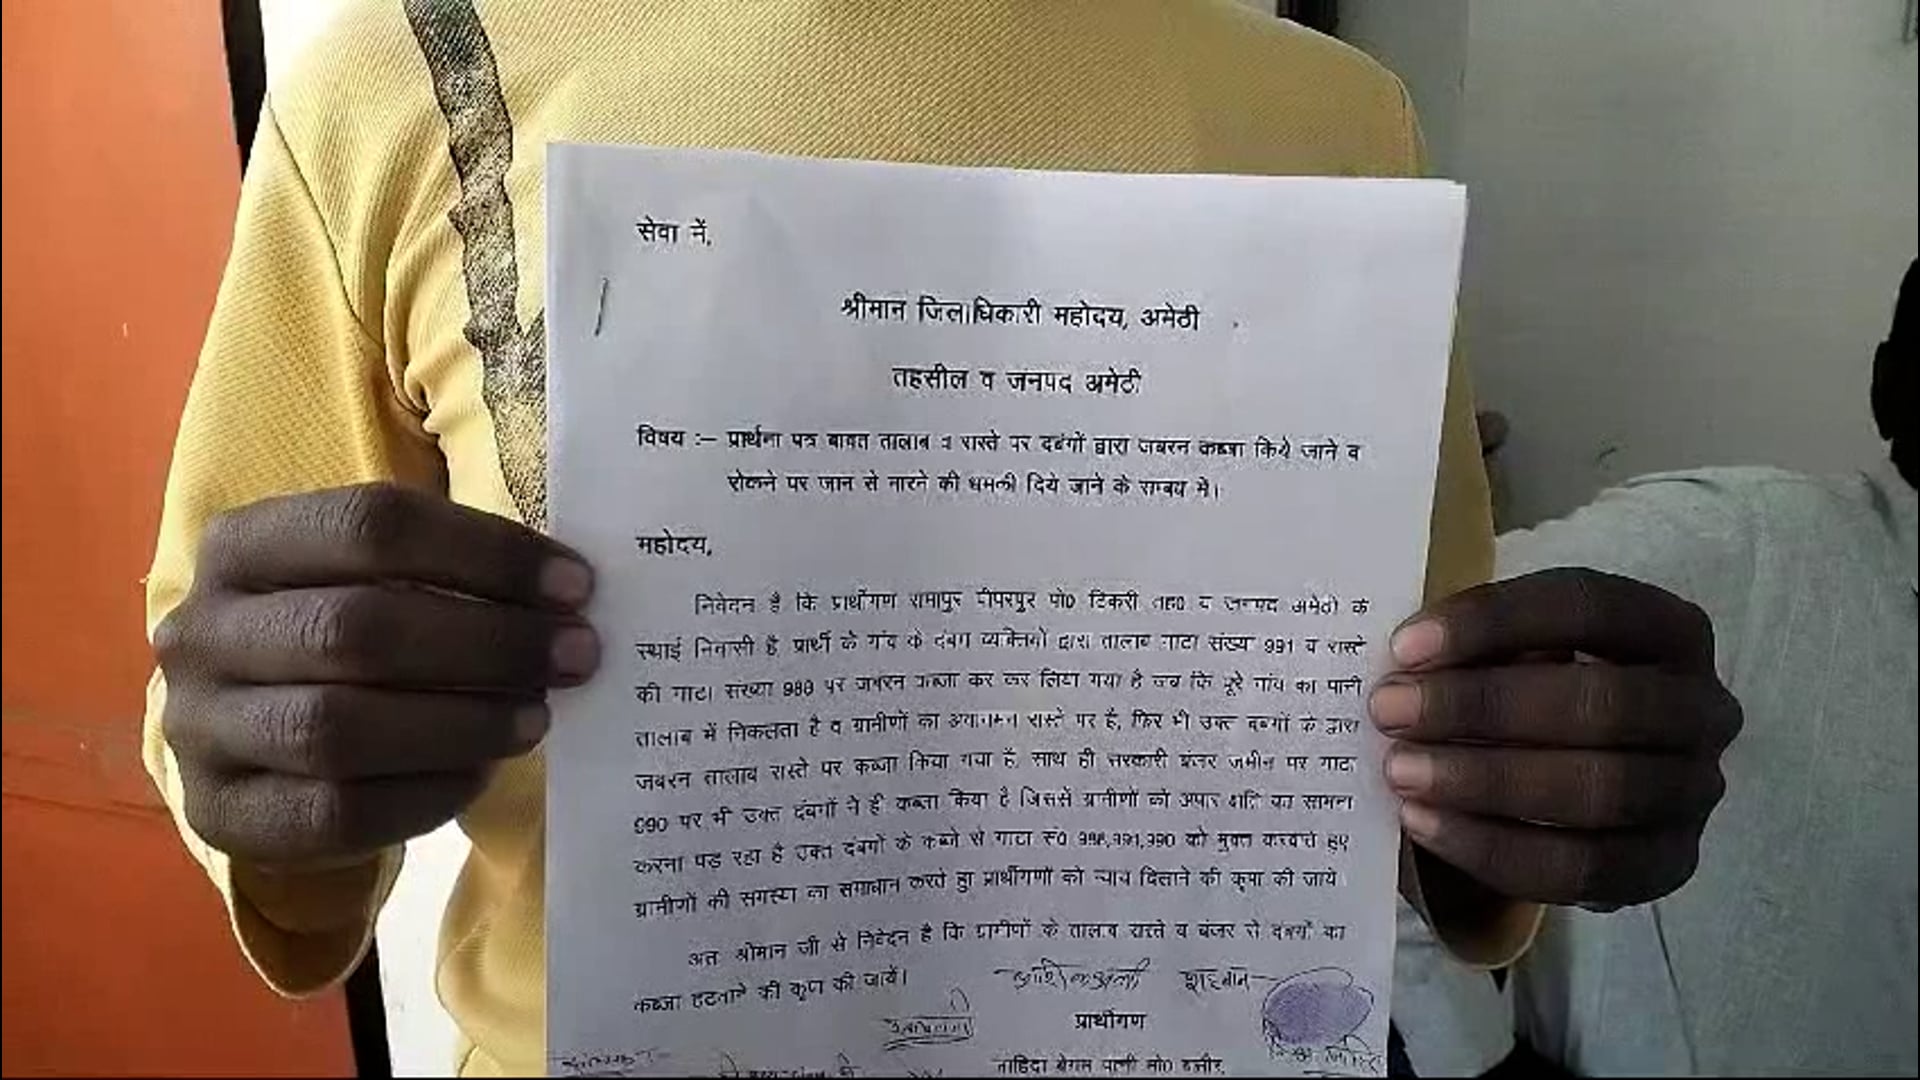 सेवा में,
श्रीमान जिलाधिकारी महोदय, अमेठी
तहसील व जनपद अमेठी
विषय :– प्रार्थना पत्र बावत तालाब व रास्ते पर दबंगों द्वारा जबरन कब्जा किये जाने व
रोकने पर जान से मारने की धमकी दिये जाने के सम्बंध में।
महोदय,
निवेदन है कि प्रार्थीगण रामापुर पीपरपुर पो0 टिकरी तह0 व जनपद अमेठी के
स्थाई निवासी है, प्रार्थी के गांव के दबंग व्यक्तियों द्वारा तालाब गाटा संख्या 991 व रास्ते
की गाटा संख्या पर जबरन कब्जा कर कर लिया गया है जब कि पूरे गांव का पानी
तालाब में निकलता है व ग्रामीणों का अवागमन रास्ते पर है, फिर भी उक्त दबंगों के द्वारा
जबरन तालाब रास्ते पर कब्जा किया गया है, साथ ही सरकारी बंजर जमीन पर गाटा
990 पर भी उक्त दंबगों ने ही कब्जा किया है जिससे ग्रामीणों को अपार क्षति का सामना
करना पड़ रहा है उक्त दंबगों के कब्जे से गाटा सं0 988,991,990 को मुक्त करवाते हुए
ग्रामीणों की समस्या का समाधान करते हुए प्रार्थीगणों को न्याय दिलाने की कृपा की जाये
अतः श्रीमान जी से निवेदन है कि ग्रामीणों के तालाब रास्ते व बंजर से दबंगों का
कब्जा हटवाने की कृपा की जायें।
प्रार्थीगण
पत्नी मो0